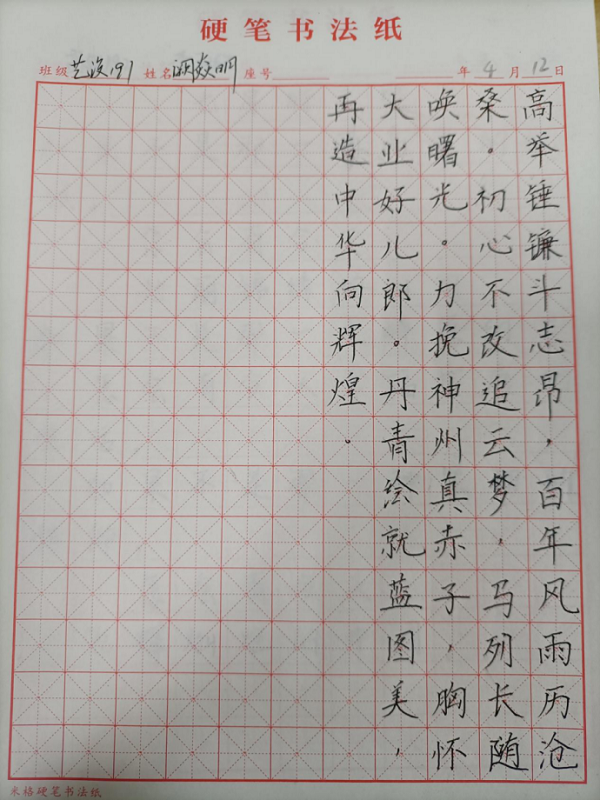 硬笔书法纸
班级 艺设191 姓名 座号 年 4 月 12 日
高举锤镰斗志昂，百年风雨历沧
桑。初心不改追云梦，马列长随
唤曙光。力挽神州真赤子，胸怀
大业好儿郎。丹青绘就蓝图美，
再造中华向辉煌。
米格硬笔书法纸